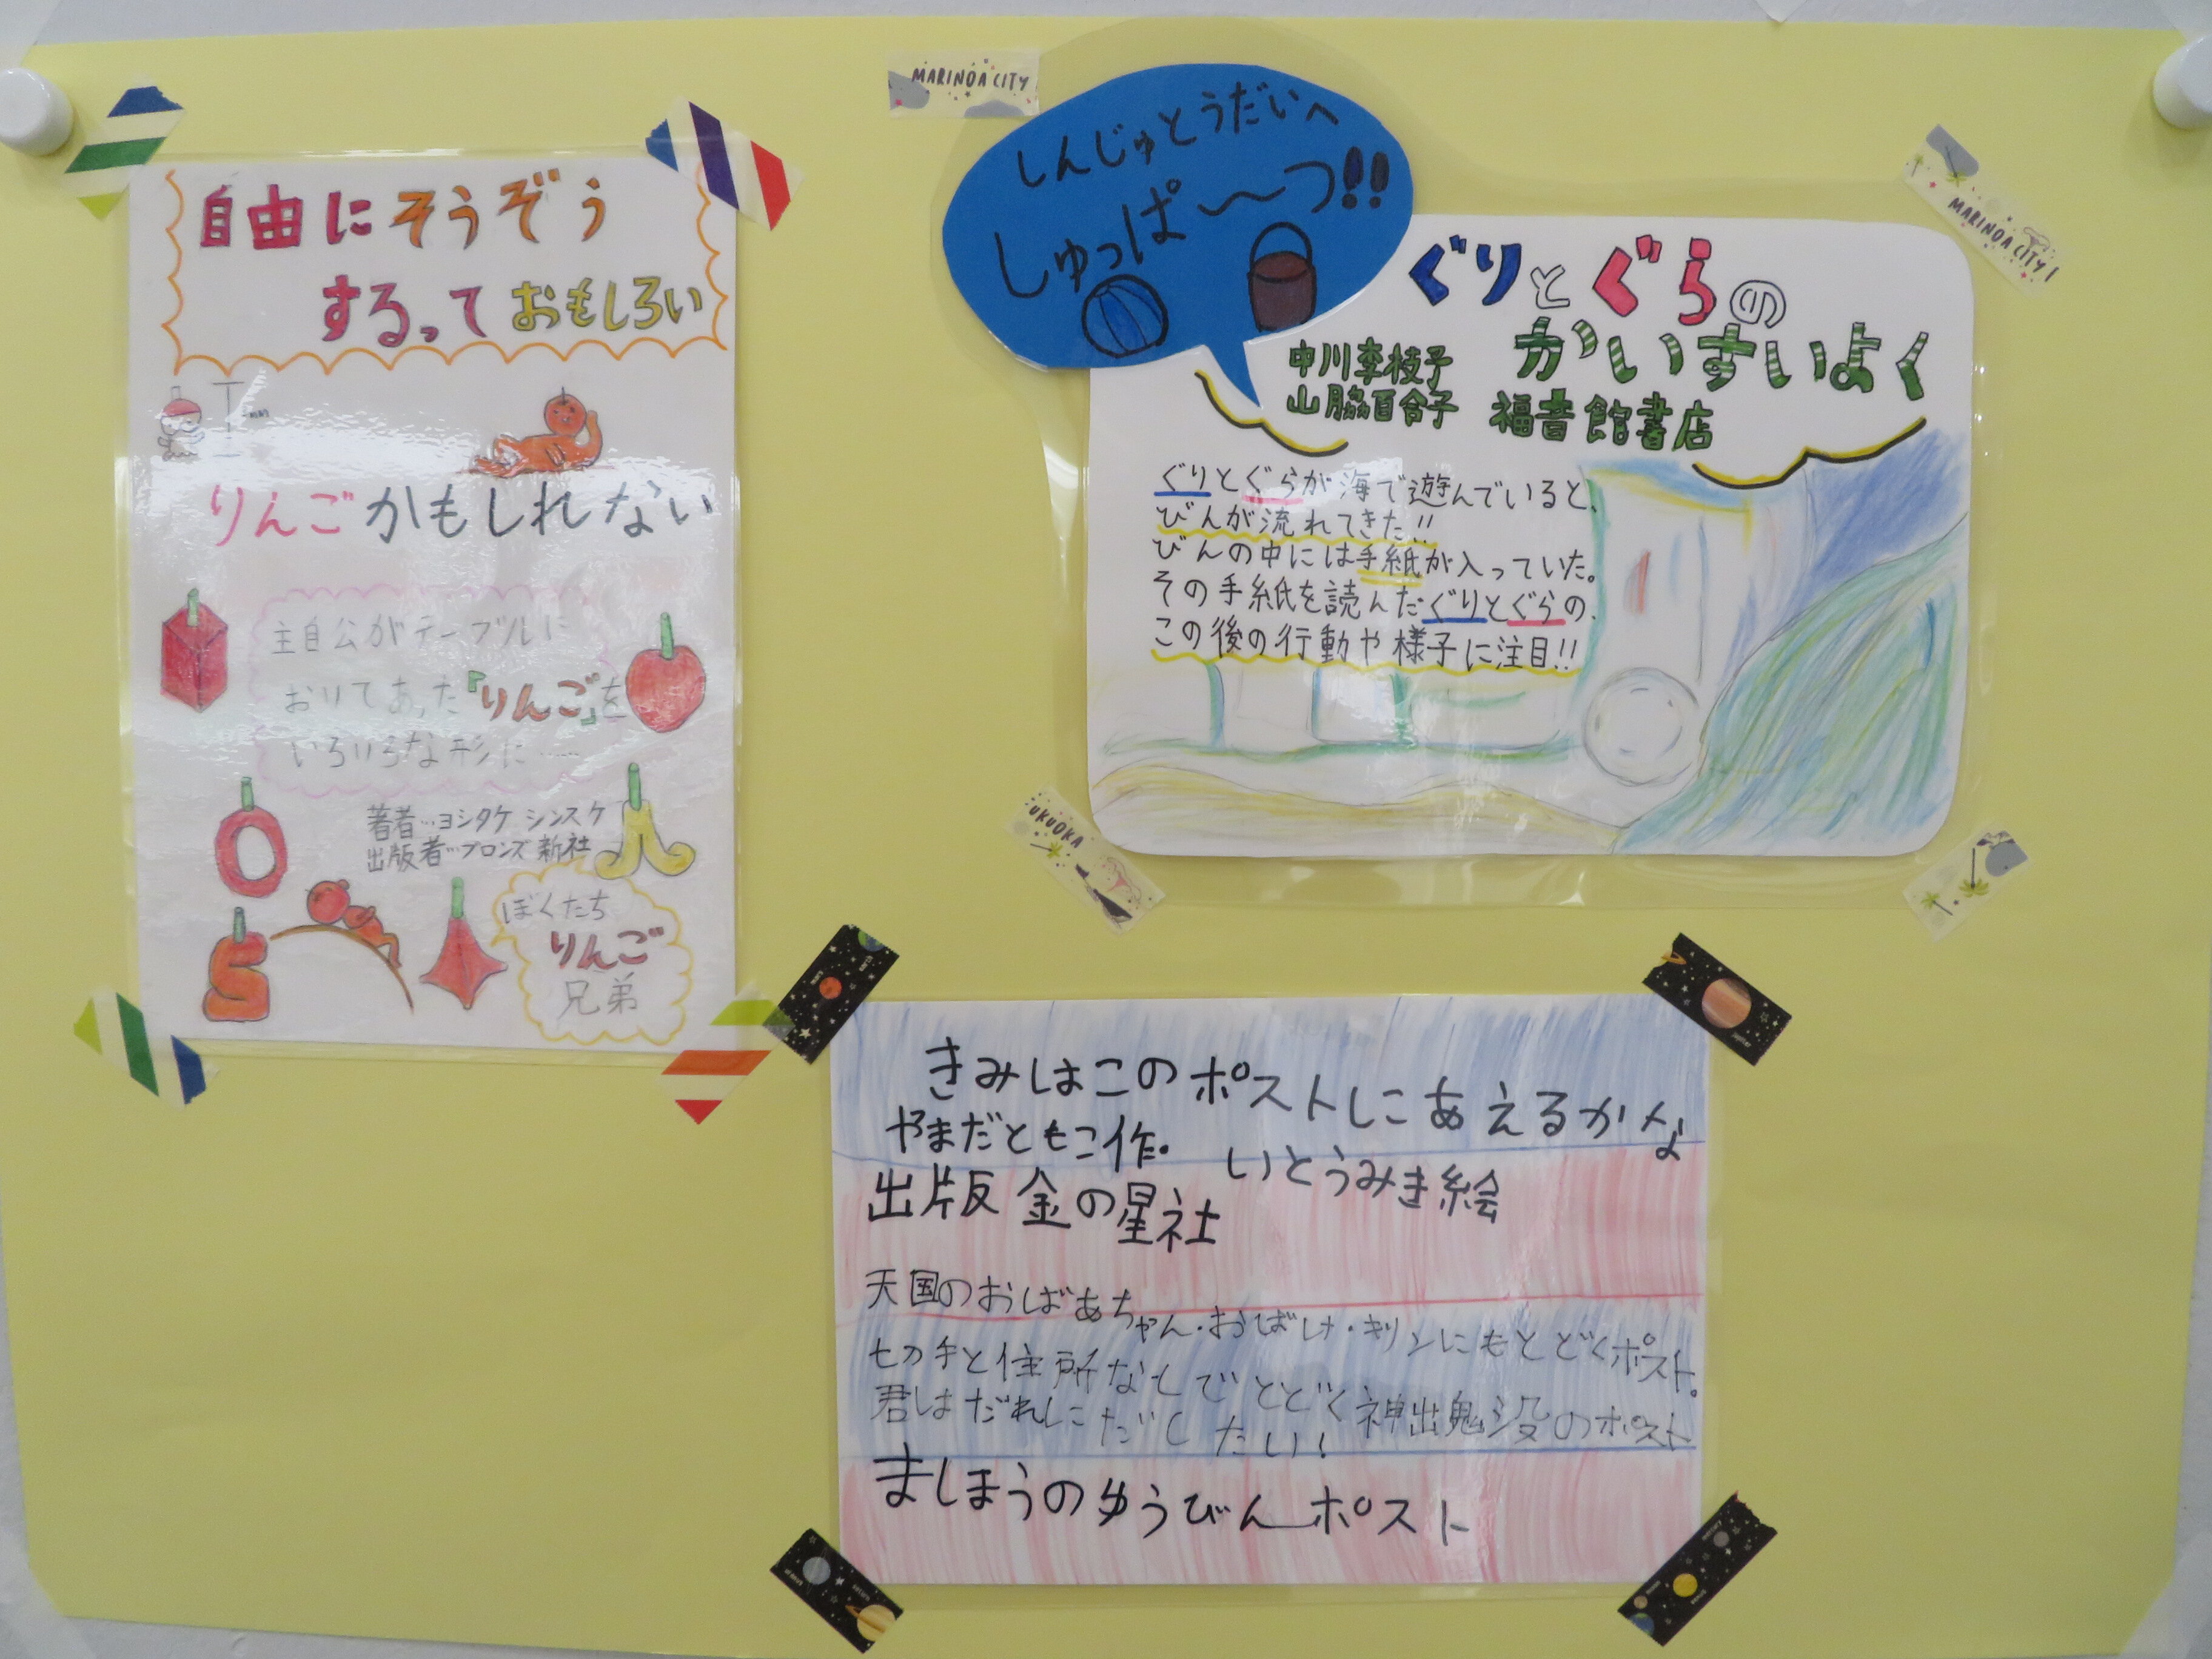 自由にそうぞう
するっておもしろい
りんごかもしれない
主自公がテーブルに
おりてあった『りんご』を
いろいろな形に……
著者…ヨシタケ シンスケ
出版者…ブロンズ新社
ぼくたち
りんご
兄弟
MARINOA CITY
しんじゅとうだいへ
しゅっぱ〜〜つ!!
MARINOA CITY
ぐりとぐらの
かいすいよく
中川李枝子
山脇百合子 福音館書店
ぐりとぐらが海で遊んでいると、
びんが流れてきた!!
びんの中には手紙が入っていた。
その手紙を読んだぐりとぐらの、
この後の行動や様子に注目!!
UKUOKA
きみはこのポストにあえるかな
やまだともこ作. いとうみき絵
出版 金の星社
天国のおばあちゃん・おばけ・キリンにもとどくポスト。
七の手と住所なしでとどく神出鬼没のポスト
君はだれにだしたい!
まほうのゆうびんポスト
Jupiter